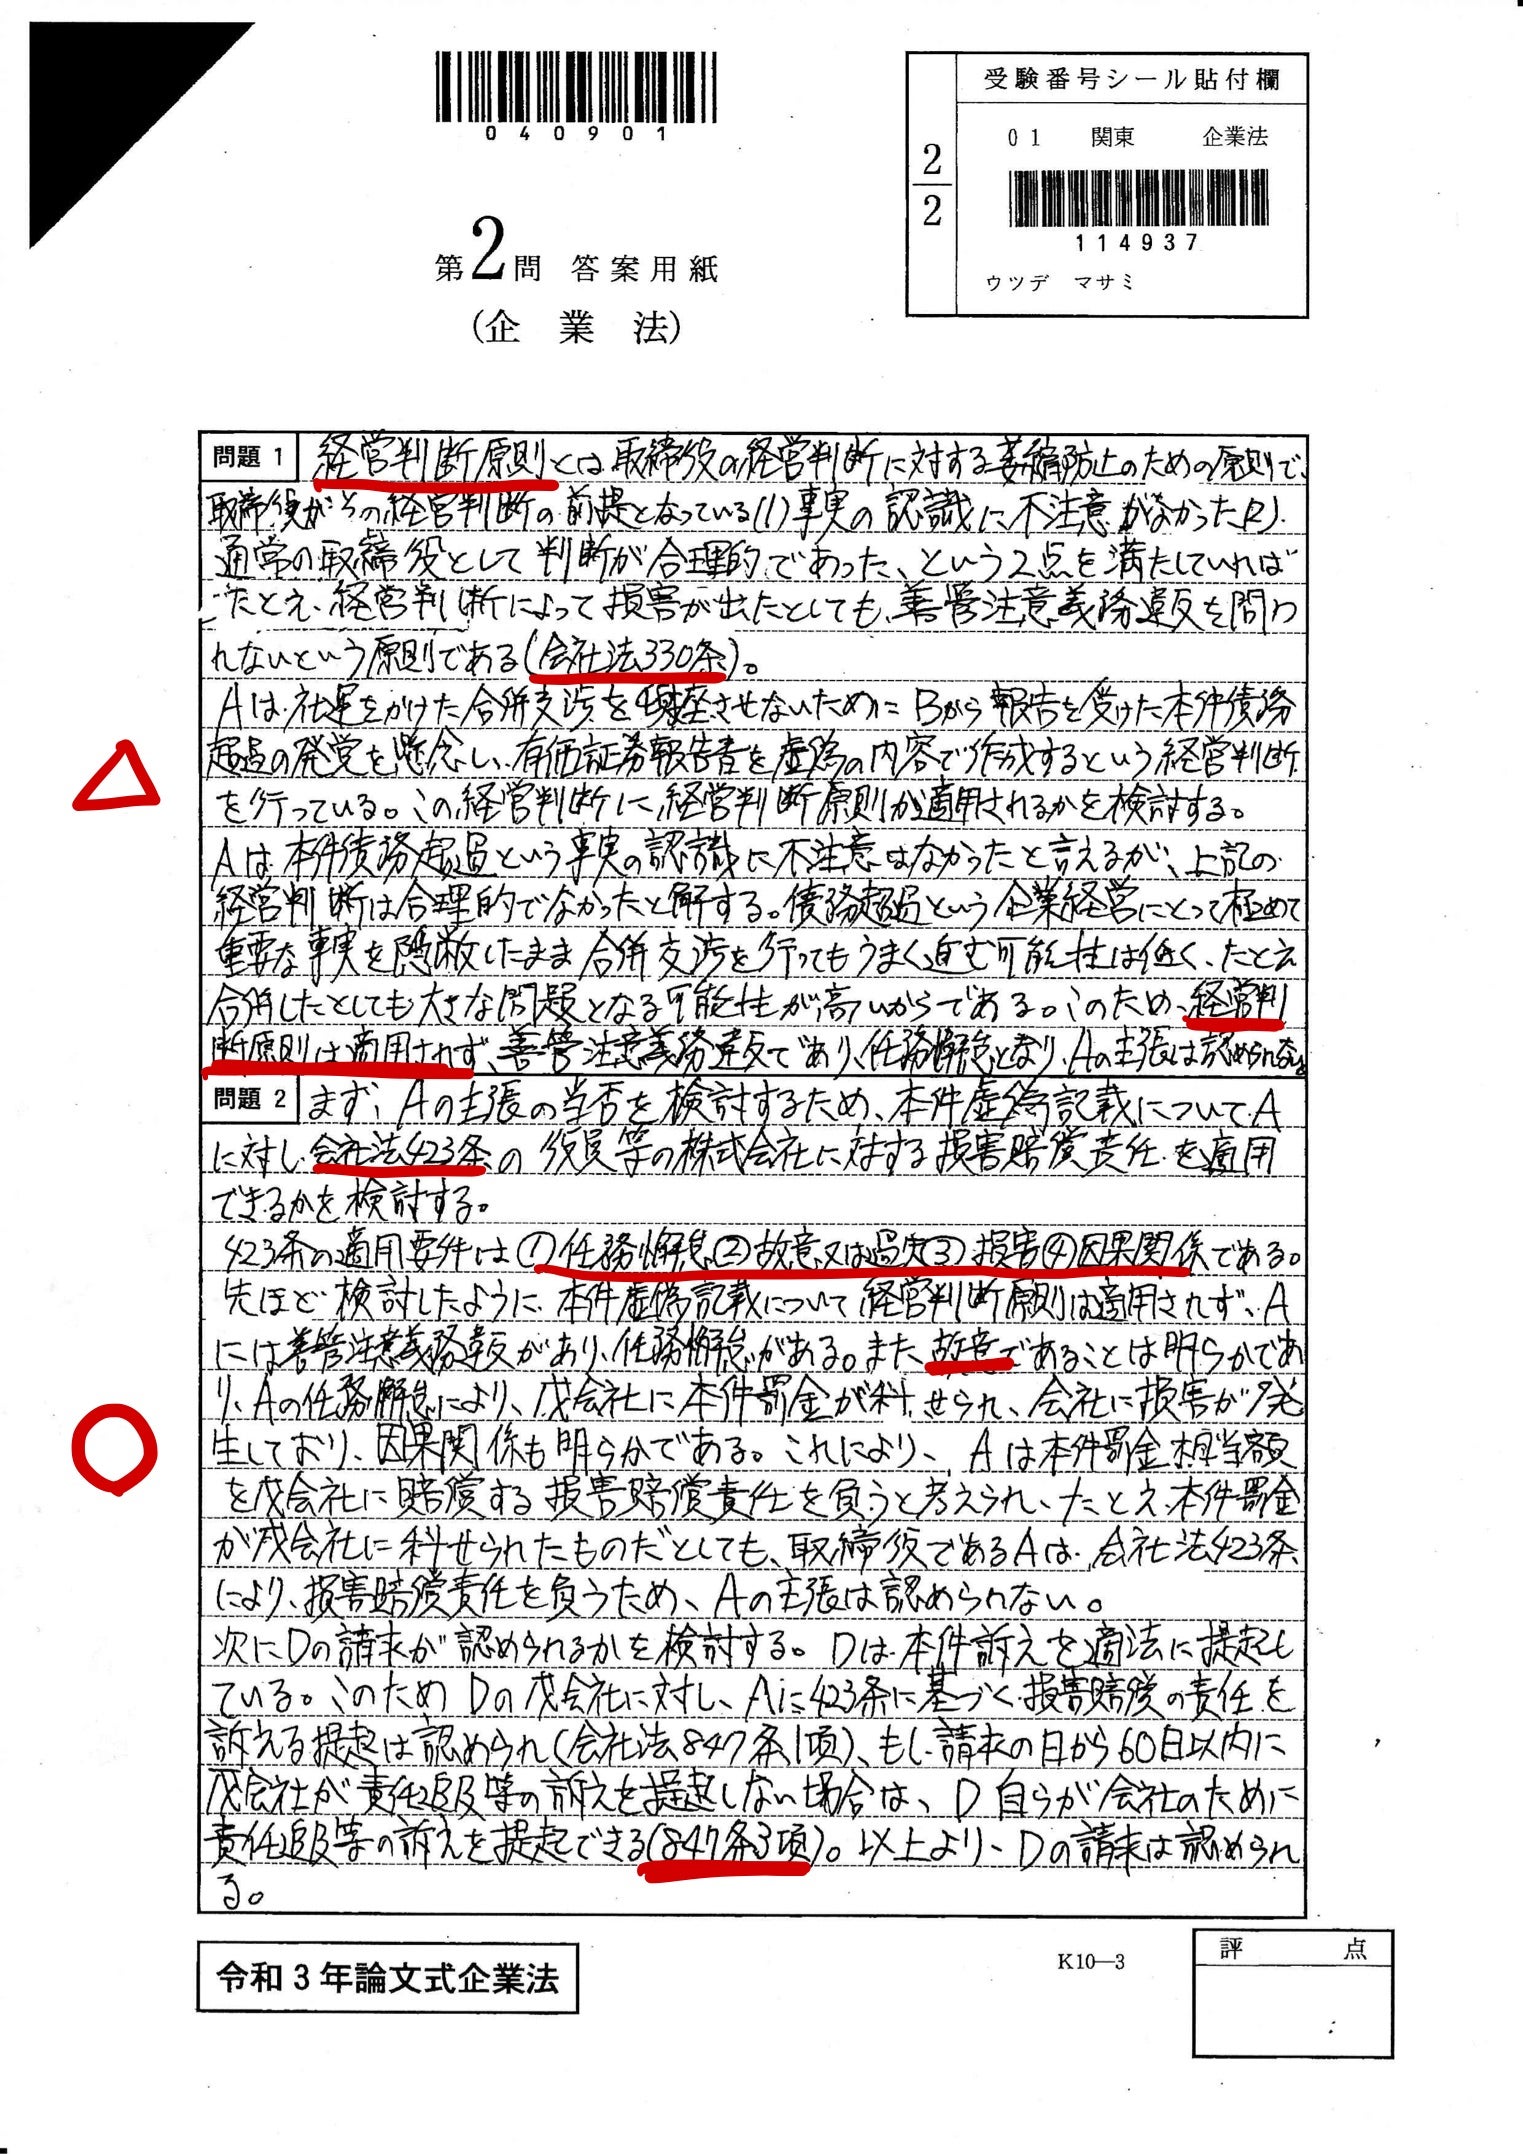 040901
受験番号シール貼付欄
2/2
01 関東 企業法
114937
ウツデ マサミ
第2問 答案用紙
(企業法)
問題 1 経営判断原則とは、取締役の経営判断に対する萎縮防止のための原則で、
取締役がその経営判断の前提となっている(1)事実の認識に不注意がなかった(2)
通常の取締役として判断が合理的であった、という2点を満たしていれば
たとえ、経営判断によって損害が出たとしても、善管注意義務違反を問わ
れないという原則である(会社法330条)。
Aは、社運をかけた合併交渉を頓座させないためにBから報告を受けた本件債務
超過の発覚を懸念し、有価証券報告書を虚偽の内容で作成するという経営判断
を行っている。この経営判断に、経営判断原則が適用されるかを検討する。
Aは、本件債務超過という事実の認識に不注意はなかったと言えるが、上記の
経営判断は合理的でなかったと解する。債務超過という企業経営にとって極めて
重要な事実を隠蔽したまま合併交渉を行ってもうまく進む可能性は低く、たとえ
合併したとしても大きな問題となる可能性が高いからである。このため、経営判
断原則は適用されず、善管注意義務違反であり、任務懈怠となり、Aの主張は認められない。
問題 2 まず、Aの主張の当否を検討するため、本件虚偽記載についてA
に対し会社法423条の役員等の株式会社に対する損害賠償責任を適用
できるかを検討する。
423条の適用要件は①任務懈怠②故意又は過失③損害④因果関係である。
先ほど検討したように、本件虚偽記載について経営判断原則は適用されず、A
には善管注意義務違反があり、任務懈怠がある。また、故意であることは明らかであ
り、Aの任務懈怠により、戊会社に本件罰金が科せられ、会社に損害が発
生しており、因果関係も明らかである。これにより、Aは本件罰金相当額
を戊会社に賠償する損害賠償責任を負うと考えられ、たとえ本件罰金
が戊会社に科せられたものだとしても、取締役であるAは、会社法423条
により、損害賠償責任を負うため、Aの主張は認められない。
次にDの請求が認められるかを検討する。Dは本件訴えを適法に提起し
ている。このためDの戊会社に対し、Aに423条に基づく損害賠償の責任を
訴える提起は認められ(会社法847条1項)、もし請求の日から60日以内に
戊会社が責任追及等の訴えを提起しない場合は、D自らが会社のために
責任追及等の訴えを提起できる(847条3項)。以上より、Dの請求は認められ
る。
令和3年論文式企業法
K10—3
評点